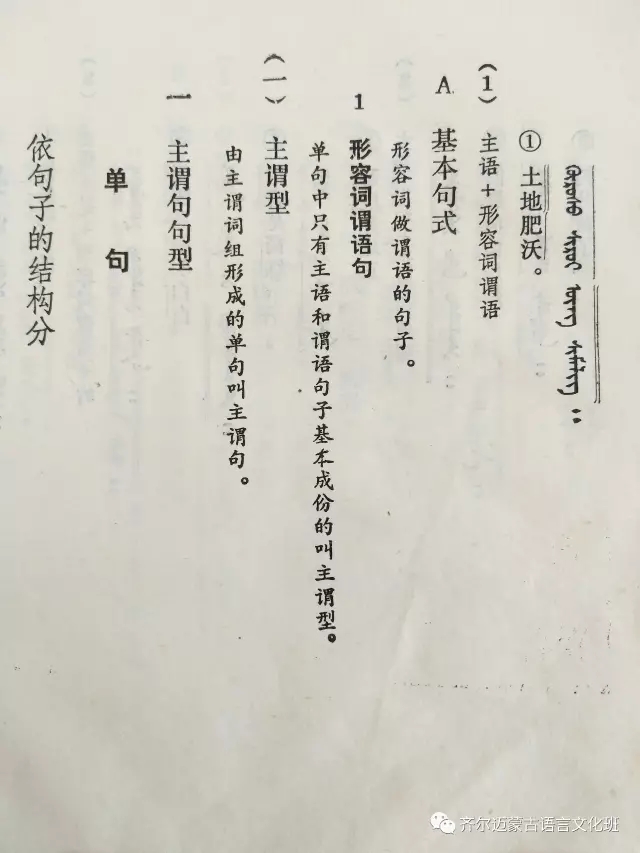 依句子的结构分
单 句
一 主谓句句型
由主谓词组形成的单句叫主谓句。
(一) 主谓型
单句中只有主语和谓语句子基本成份的叫主谓型。
1 形容词谓语句
形容词做谓语的句子。
A 基本句式
(1) 主语+形容词谓语
① 土地肥沃。
齐尔迈蒙古语言文化班